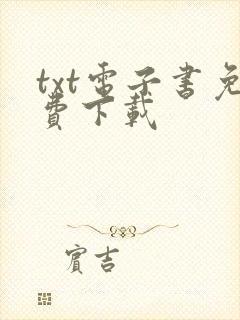 txt電子書免
費下載
賓吉